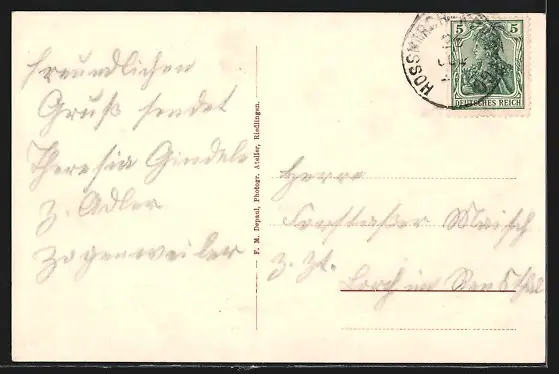 Freundlichen
Gruß sendet
Theresia Gindele
z. Adler
Zogenweiler
F. M. Depaul, Photogr. Atelier, Riedlingen.
HOSSKIRCH
5 5
DEUTSCHES REICH
Herrn
Maisch
z. Zt. Lorch im